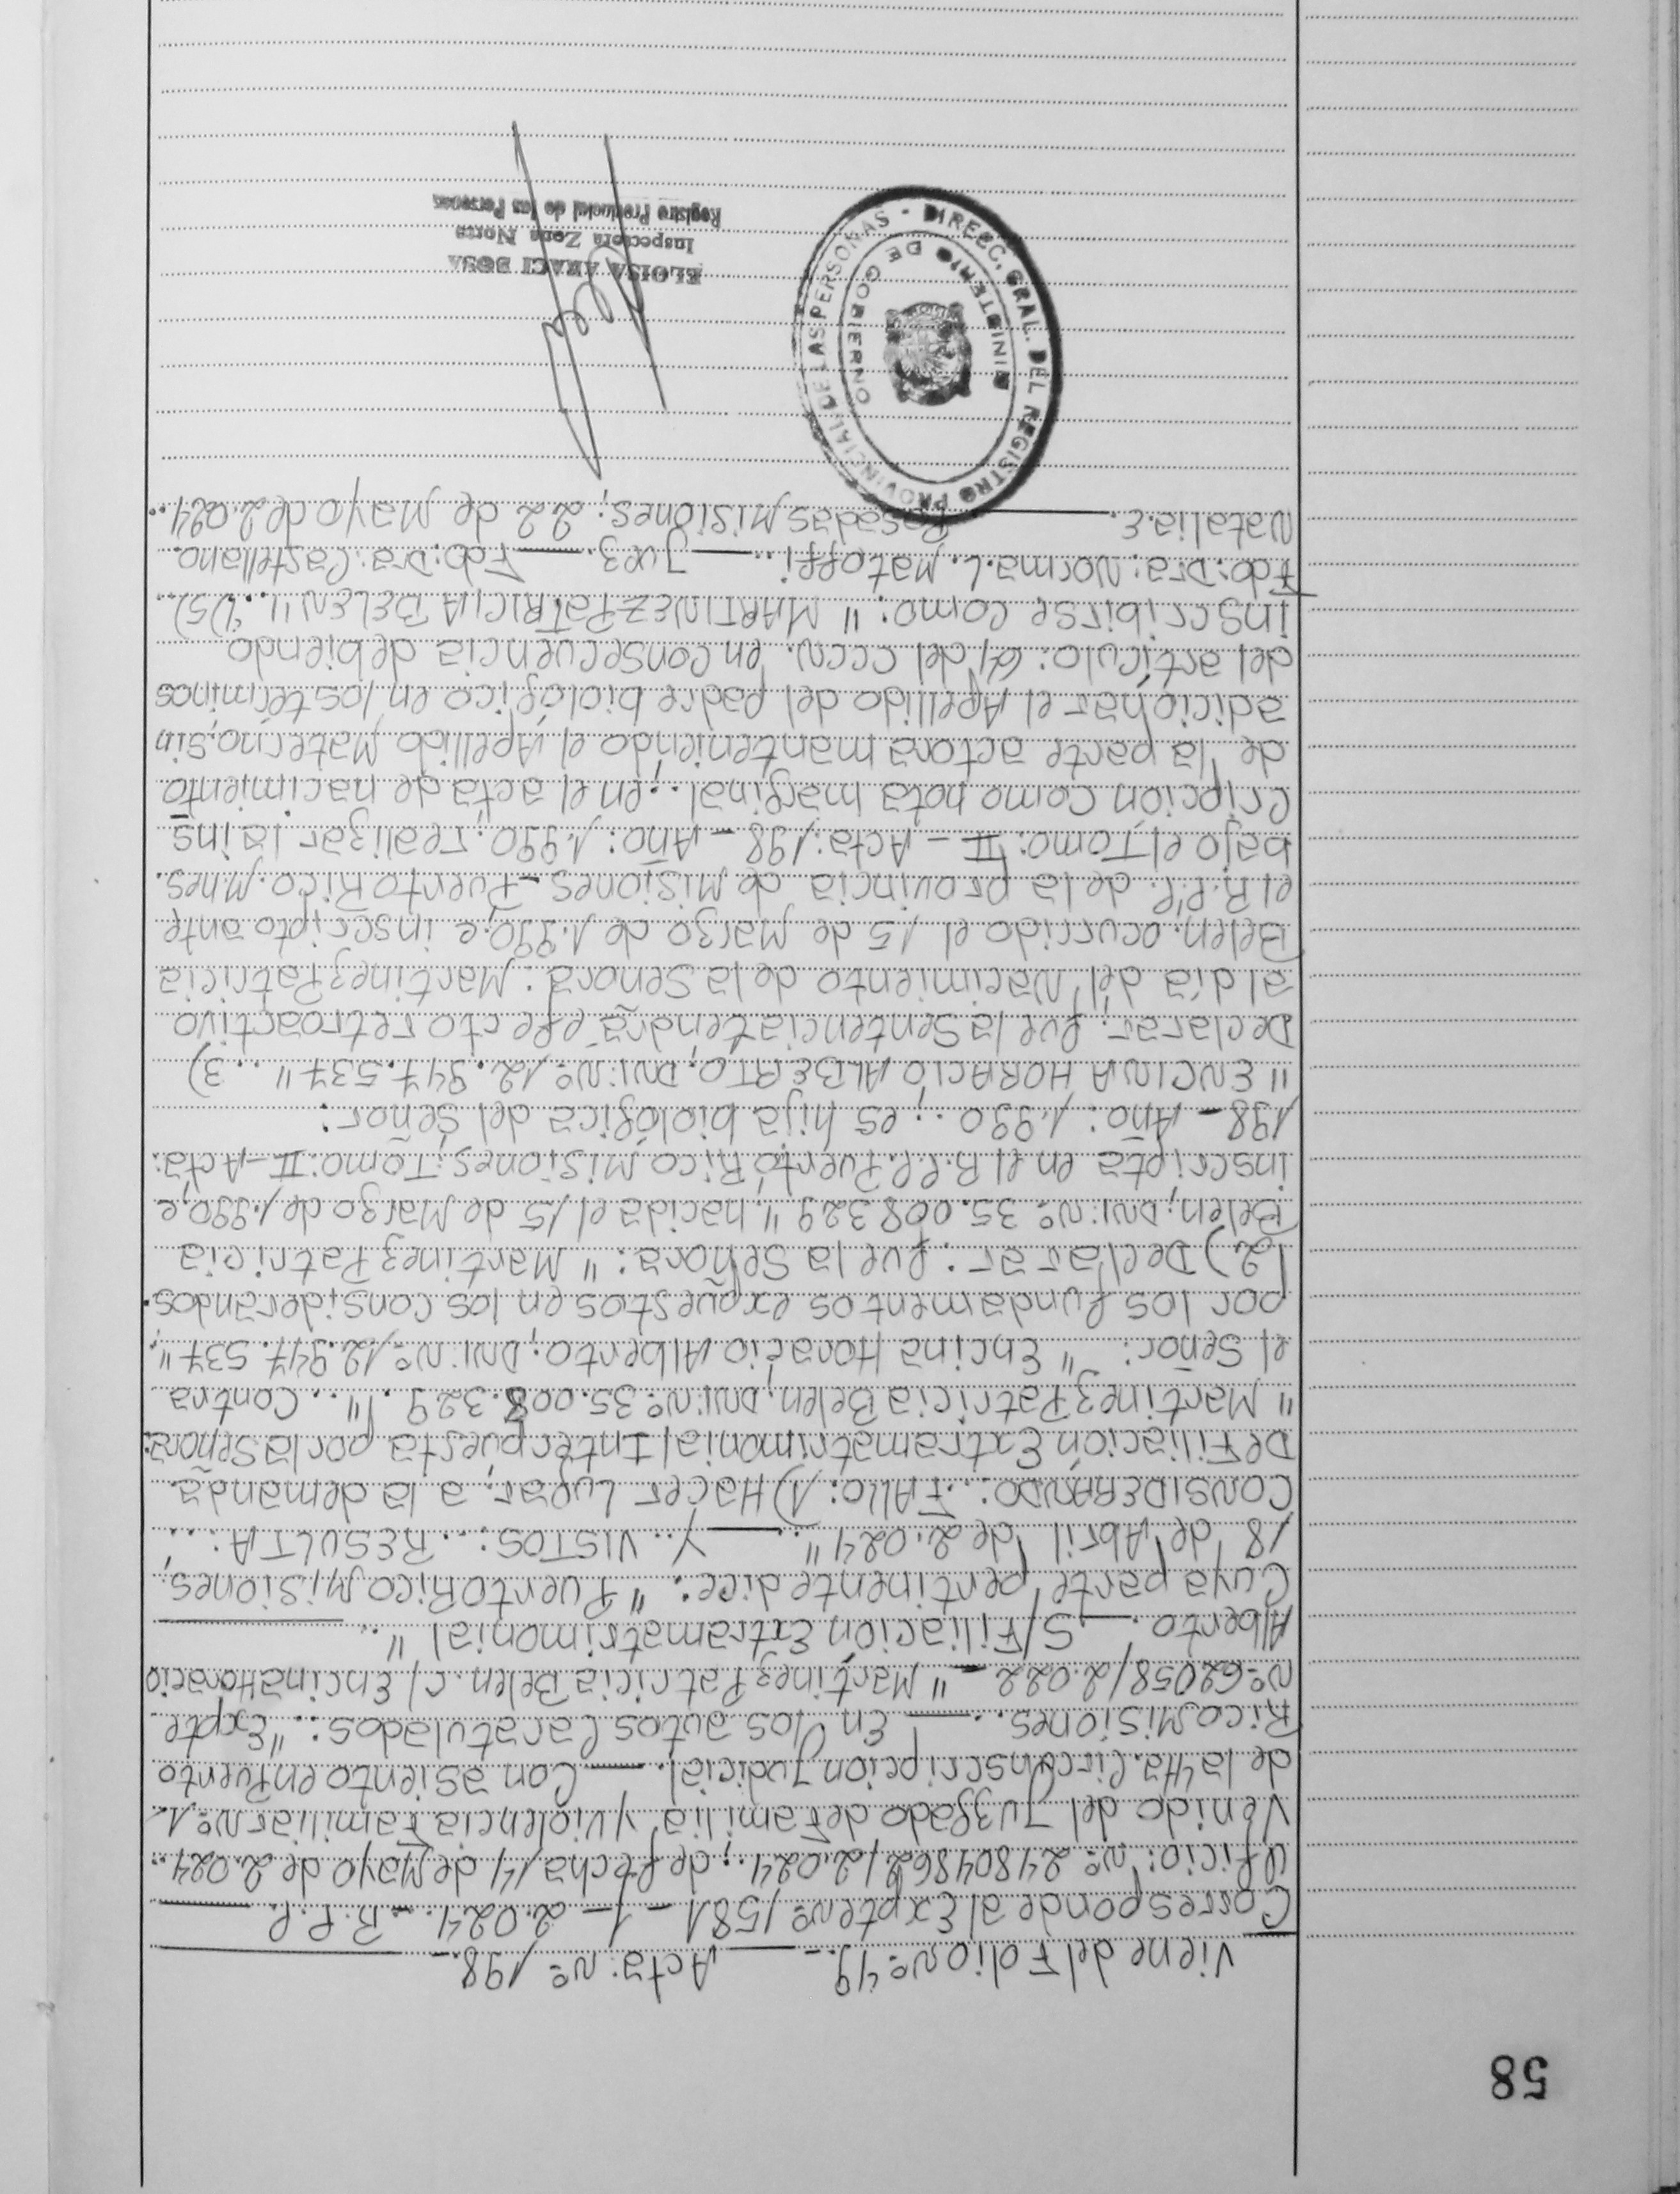 58
Viene del Folio Nº: 49.- Acta: Nº: 198.-
Corresponde al Expte Nº: 1581 - 1 - 2.024.- R.P.P.
Oficio: Nº: 24804862/2.024..; de fecha 14 de Mayo de 2.024..
Venido del Juzgado de Familia y Violencia Familiar Nº: 1.
de la 4ta. Circunscripción Judicial.— Con asiento en Puerto
Rico Misiones..— En los autos Caratulados: "Expte
Nº: 62058/2.022 - "Martinez Patricia Belen. c/ Encina Horacio
Alberto.— S/Filiación Extramatrimonial"..
Cuya parte pertinente dice: "Puerto Rico Misiones,
18 de Abril de 2.024".— Y.. VISTOS:... RESULTA:...;
CONSIDERANDO:.. FAllo: 1) Hacer Lugar, a la demanda
De Filiación Extramatrimonial Interpuesta por la Señora:
"Martinez Patricia Belen, DNI: Nº: 35.008.329."... Contra
el Señor: "Encina Horacio Alberto, DNI: Nº: 12.947.537",
por los fundamentos expuestos en los considerandos.
2) Declarar: que la Señora: "Martinez Patricia
Belen, DNI: Nº: 35.008329", nacida el 15 de Marzo de 1.990, e
inscripta en el R.P.P. Puerto Rico Misiones; Tomo: II - Acta:
198 - Año: 1.990..; es hija biológica del Señor:
"ENCINA HORACIO ALBERTO, DNI: Nº: 12.947.537"... 3)
Declarar: que la Sentencia tendrá efecto retroactivo
al día del Nacimiento de la Señora: Martinez Patricia
Belen, ocurrido el 15 de Marzo de 1.990, e inscripto ante
el R.P.P. de la provincia de Misiones - Puerto Rico. Mnes.
bajo el Tomo: II - Acta: 198 - Año: 1.990; realizar la ins
cripción como nota marginal.. en el acta de nacimiento
de la parte actora manteniendo el Apellido Materno, sin
adicionar el Apellido del padre biológico en los términos
del artículo: 64 del CCCN. en consecuencia debiendo
inscribirse como: "MARTINEZ PATRICIA BELEN"... 5)..
Fdo: Dra: Norma. L. Matoffi..— Juez.— Fdo: Dra: Castellano
Natalia.E.— Posadas Misiones; 22 de Mayo de 2.024..
DIREC. GRAL. DEL REGISTRO PROVINCIAL DE LAS PERSONAS -
MINISTERIO DE GOBIERNO
ELOISA ARACI DOSA
Inspectora Zona Norte
Registro Provincial de las Personas